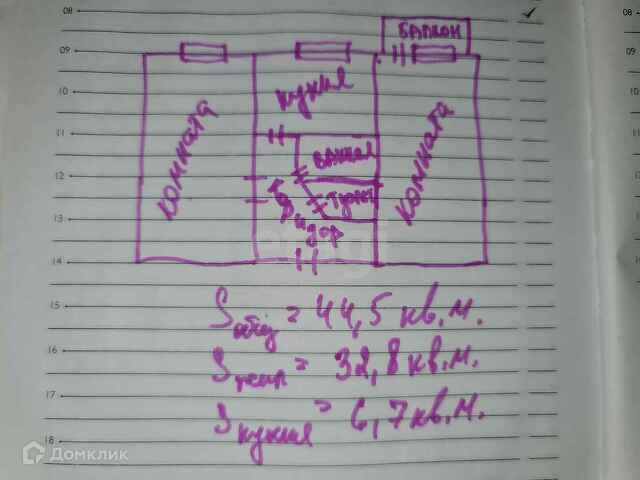 08
09
10
11
12
13
14
15
16
17
18
08
09
балкон
кухня
комната
ванная
туалет
комната
коридор
Sобщ = 44,5 кв.м.
Sжил = 32,8 кв.м.
Sкухня = 6,7 кв.м.
Домклик